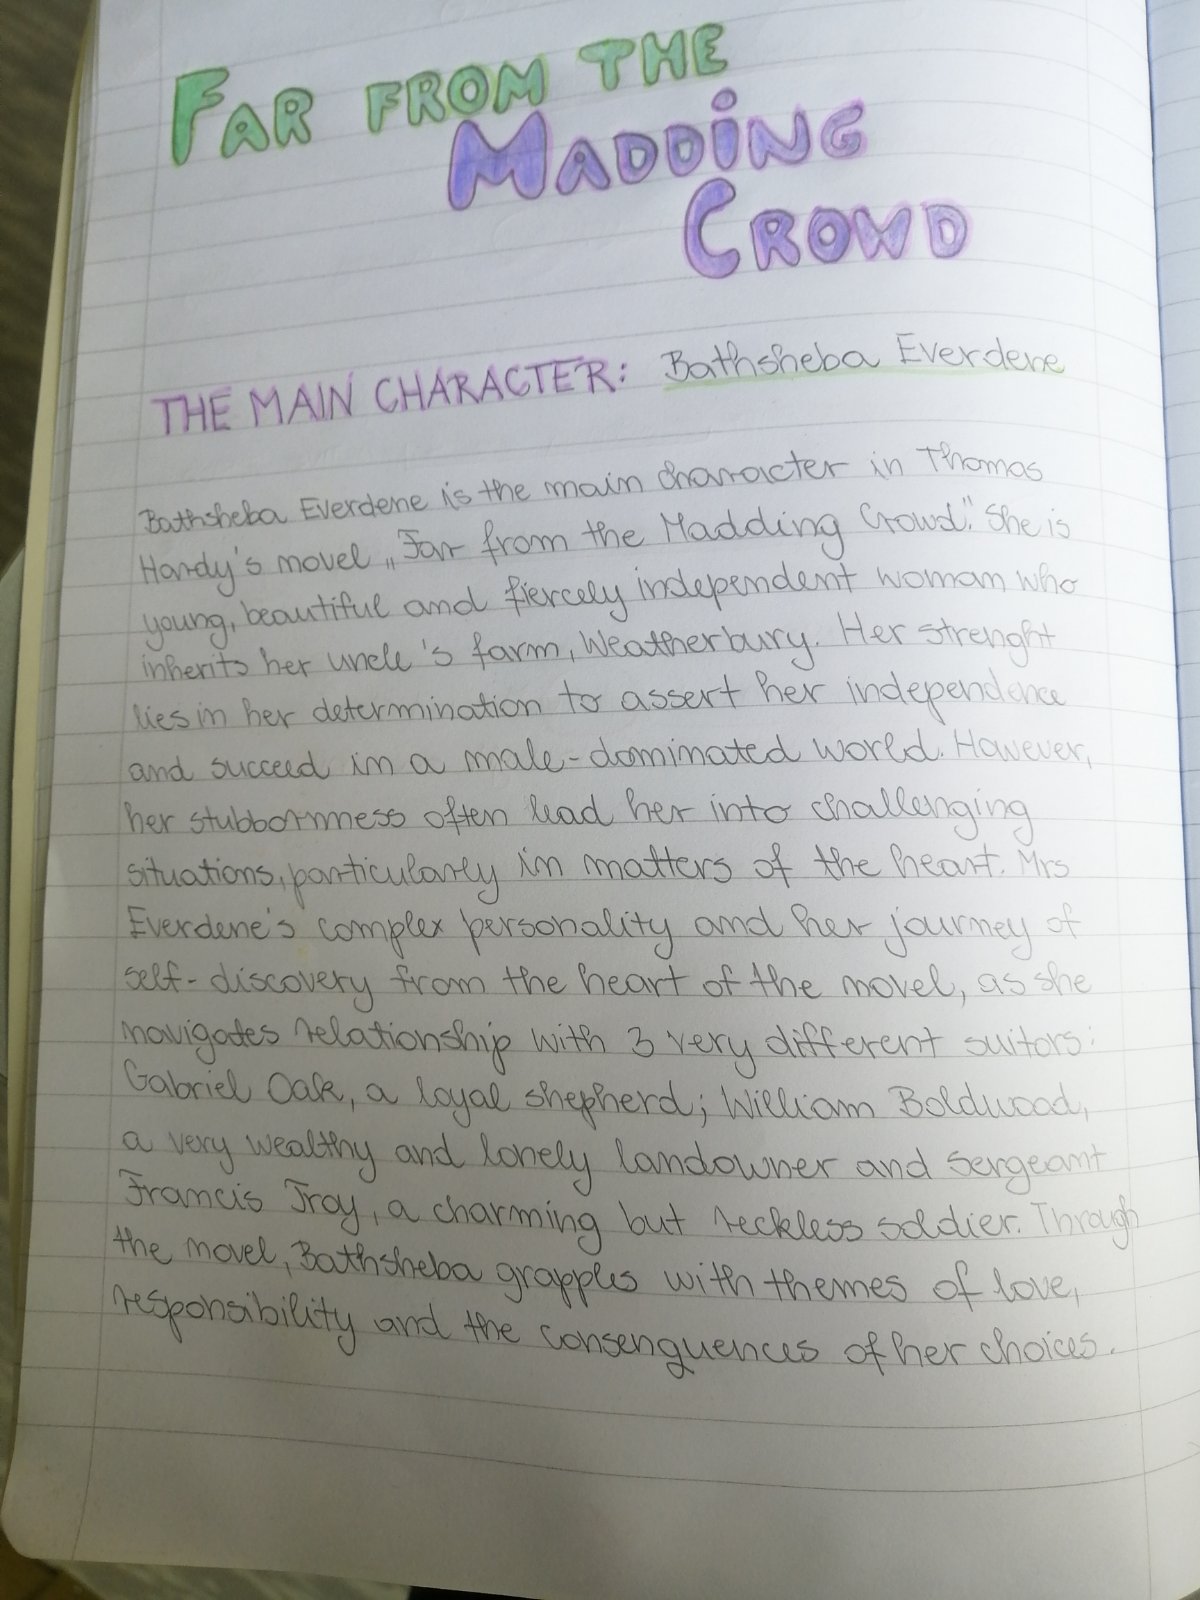 FAR FROM THE
MADDING
CROWD
THE MAIN CHARACTER: Bathsheba Everdene
Bathsheba Everdene is the main character in Thomas
Hardy's movel „Far from the Madding Crowd." She is
young, beautiful and fiercely independent woman who
inherits her uncle's farm, Weatherbury. Her strenght
lies in her determination to assert her independence
and succeed in a male-dominated world. However,
her stubbornness often lead her into challenging
situations, particularly in matters of the heart. Mrs
Everdene's complex personality and her journey of
self-discovery from the heart of the novel, as she
navigates relationship with 3 very different suitors:
Gabriel Oak, a loyal shepherd; William Boldwood,
a very wealthy and lonely landowner and Sergeant
Francis Troy, a charming but reckless soldier. Through
the novel, Bathsheba grapples with themes of love,
responsibility and the consenquences of her choices.